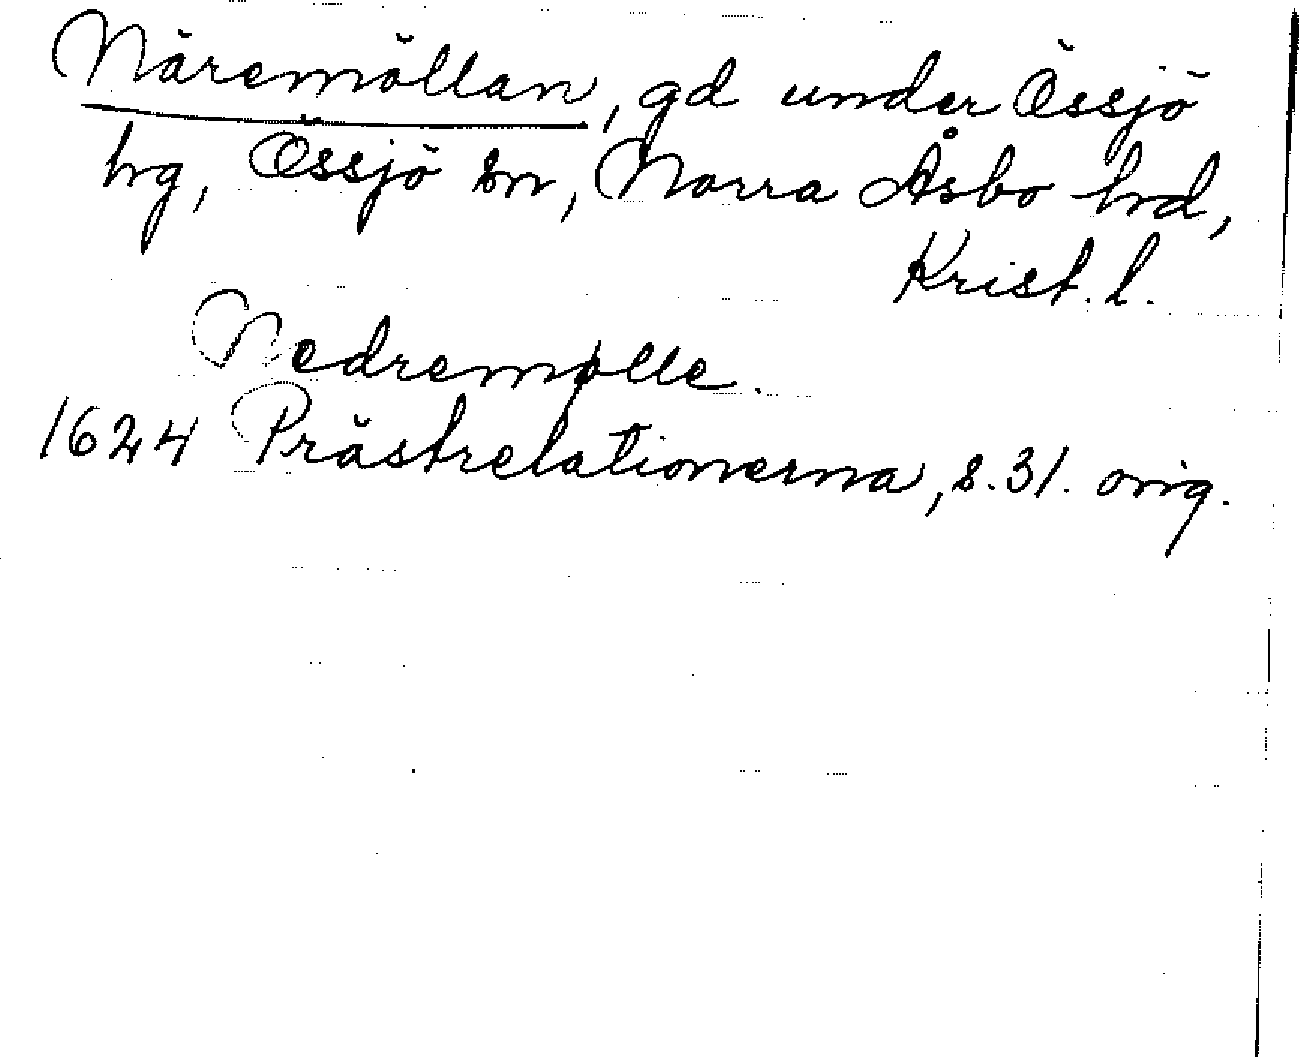 Näremöllan, gd under Össjö
hg, Össjö sn, Norra Åsbo hd,
Krist. l.
Nedremølle.
1624 Prästrelationerna, s. 31. orig.